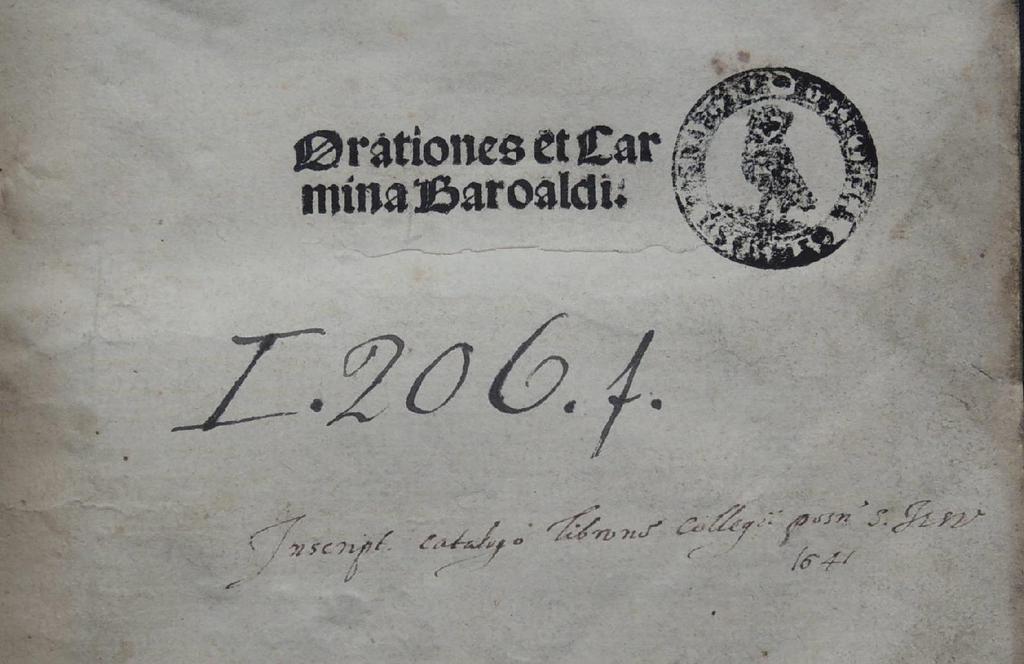 Orationes et Car
mina Baroaldi.
I. 206. f.
Inscript. catalogo libroru collegii posn s. Iesu
1641